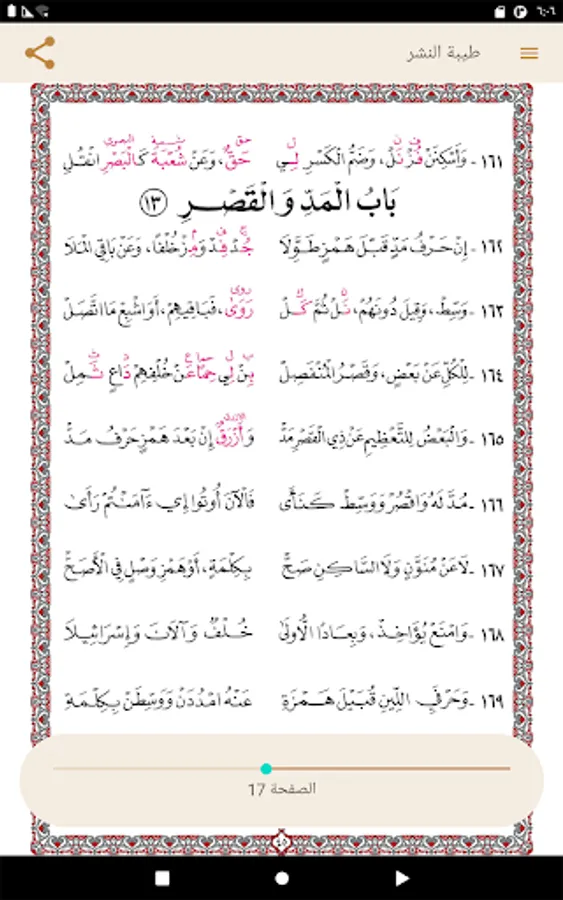 ٦:٠٦
طيبة النشر
١٦١ - وَأَسْكِنَنْ فُزْ نَلْ، وَضَمُّ الْكَسْرِ لِي حَقٌّ، وَعَنْ شُعْبَةَ كَالْبَصْرِ انْقُلِ
بَابُ الْمَدِّ وَالْقَصْرِ ١٣
١٦٢ - إِنْ حَرْفُ مَدٍّ قَبْلَ هَمْزٍ طَوَّلَا جُدْ فِدْ وَمِزْ خُلْفًا، وَعَنْ بَاقِي الْمَلَا
١٦٣ - وَسِّطْ، وَقِيلَ دُونَهُمْ، نَلْ ثُمَّ كَلْ رَوَى، فَبَاقِيهِمْ، أَوَ اشْبِعْ مَا اتَّصَلْ
١٦٤ - لِلْكُلِّ عَنْ بَعْضٍ، وَقَصْرُ الْمُنْفَصِلْ بِنْ لِي حِمًا عَنْ خُلْفِهِمْ دَاعٍ ثَمِلْ
١٦٥ - وَالْبَعْضُ لِلتَّعْظِيمِ عَنْ ذِي الْقَصْرِ مَدّْ وَأَزْرَقٌ إِنْ بَعْدَ هَمْزٍ حَرْفُ مَدّْ
١٦٦ - مُدَّ لَهُ وَاقْصُرْ وَوَسِّطْ كَنَأَى فَالْآنَ أُوتُوا إِي ءَآمَنْتُمْ رَأَى
١٦٧ - لَا عَنْ مُنَوَّنٍ وَلَا السَّاكِنِ صَحّْ بِكِلْمَةٍ، أَوْ هَمْزِ وَصْلٍ فِي الْأَصَحّْ
١٦٨ - وَامْنَعْ يُؤَاخِذْ، وَبِعَادًا الُاولَى خُلْفٌ وَآلَانَ وَإِسْرَائِيلَا
١٦٩ - وَحَرْفَيِ اللِّينِ قُبَيْلَ هَمْزَةِ عَنْهُ امْدُدَنْ وَوَسِّطَنْ بِكِلْمَةِ
الصفحة 17